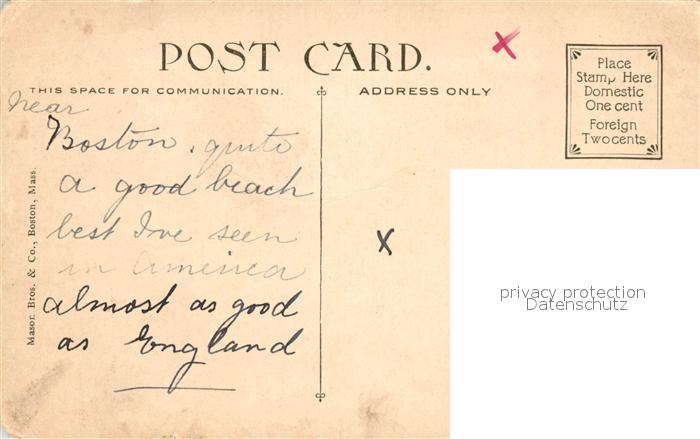 POST CARD.
THIS SPACE FOR COMMUNICATION.
ADDRESS ONLY
Place
Stamp Here
Domestic
One cent
Foreign
Two cents
near
Boston, quite
a good beach
best I've seen
in America
almost as good
as England
Mason Bros. & Co., Boston, Mass.
x
x
privacy protection
Datenschutz